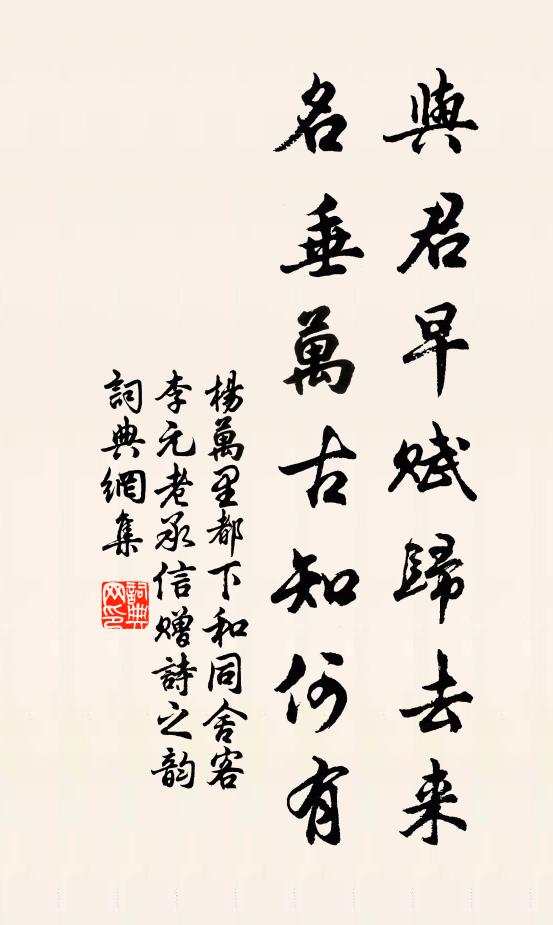 與君早賦歸去来
名垂萬古知何有
楊萬里都下和同舍客
李元老承信贈詩之韵
詞典網集
詞典网印